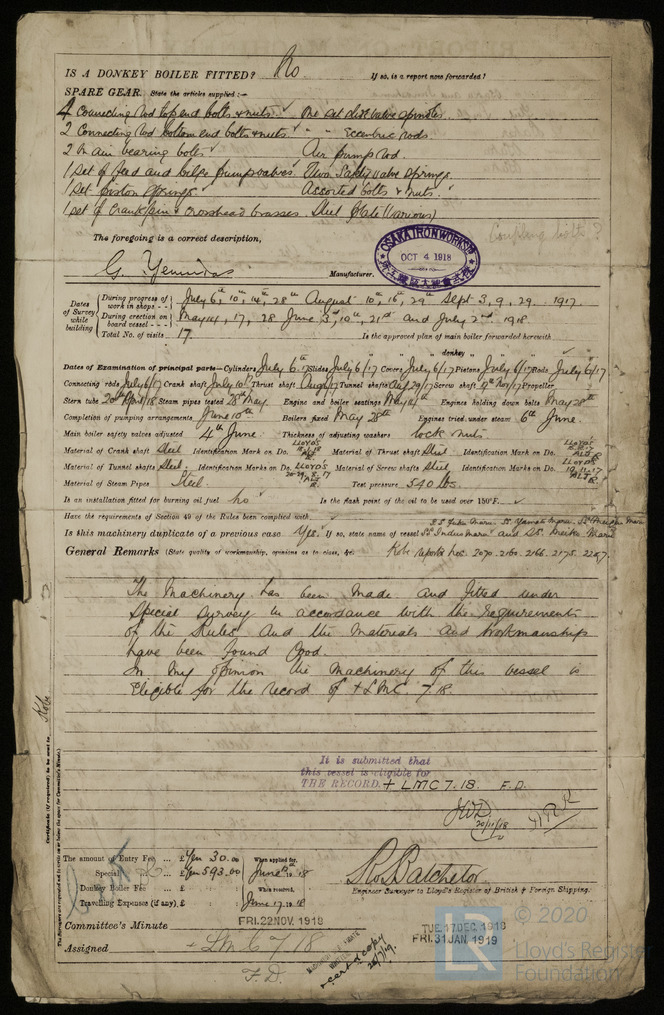 IS A DONKEY BOILER FITTED? No. If so, is a report now forwarded?
SPARE GEAR. State the articles supplied:—
4 Connecting rod top end bolts & nuts. ✓ One set dist valve spindles
2 Connecting rod bottom end bolts & nuts. " " Eccentric rods.
2 Main bearing bolts ✓ Air pump rod.
1 Set of feed and bilge pump valves. Two Safety valve springs.
1 Set piston springs ✓ Assorted bolts & nuts. ✓
1 set of Crank pin & crosshead brasses. Steel plate (various)
Coupling bolts?
The foregoing is a correct description,
Manufacturer.
OSAKA IRON WORKS LTD
OCT 4 1918
Dates of Survey while building
During progress of work in shops - - July 6th, 10th, 14th, 28th August 10th, 16th, 29th Sept 3, 9, 29. 1917.
During erection on board vessel - - - May 14, 17, 28 June 10th, 21st and July 2nd 1918.
Total No. of visits 17. Is the approved plan of main boiler forwarded herewith
" " " donkey " " "
Dates of Examination of principal parts—Cylinders July 6/17 Slides July 6/17 Covers July 6/17 Pistons July 6/17 Rods July 6/17
Connecting rods July 6/17 Crank shaft July 10th Thrust shaft Aug/17 Tunnel shafts Aug 29/17 Screw shaft Propeller
Stern tube Steam pipes tested 28th May. Engine and boiler seatings May 14th Engines holding down bolts May 28th
Completion of pumping arrangements June 10th Boilers fixed May 28th Engines tried under steam 6th June.
Main boiler safety valves adjusted 4th June. Thickness of adjusting washers lock nuts.
Material of Crank shaft Steel Identification Mark on Do. LLOYD'S Material of Thrust shaft Steel Identification Mark on Do. LLOYD'S
Material of Tunnel shafts Steel. Identification Marks on Do. LLOYD'S Material of Screw shafts Steel Identification Marks on Do. LLOYD'S
Material of Steam Pipes Steel. Test pressure 540 lbs.
Is an installation fitted for burning oil fuel No ✓ Is the flash point of the oil to be used over 150°F. ✓
Have the requirements of Section 49 of the Rules been complied with
Is this machinery duplicate of a previous case Yes. If so, state name of vessel
General Remarks (State quality of workmanship, opinions as to class, &c. Kobe reports Nos. 2070. 2160. 2166. 2175. 2207.
The Machinery has been made and fitted under
Special Survey in accordance with the requirements
of the Rules and the Materials and Workmanship
have been found Good.
In my opinion the Machinery of this vessel is
Eligible for the record of + LMC 7.18.
It is submitted that
this vessel is eligible for
THE RECORD. + LMC 7.18. F.D.
JWD
20/11/18
Certificate (if required) to be sent to Kobe
The amount of Entry Fee ... £ Yen 30.00 When applied for,
Special ... £ Yen 593.00 June 18
Donkey Boiler Fee ... £ When received,
Travelling Expenses (if any) £ June 17 18
Engineer Surveyor to Lloyd's Register of British & Foreign Shipping.
Committee's Minute FRI. 22 NOV. 1918 TUE. 17 DEC. 1918
FRI. 31 JAN 1919
Assigned + LMC 7.18
F.D.
© 2020
LR
Lloyd's Register
Foundation